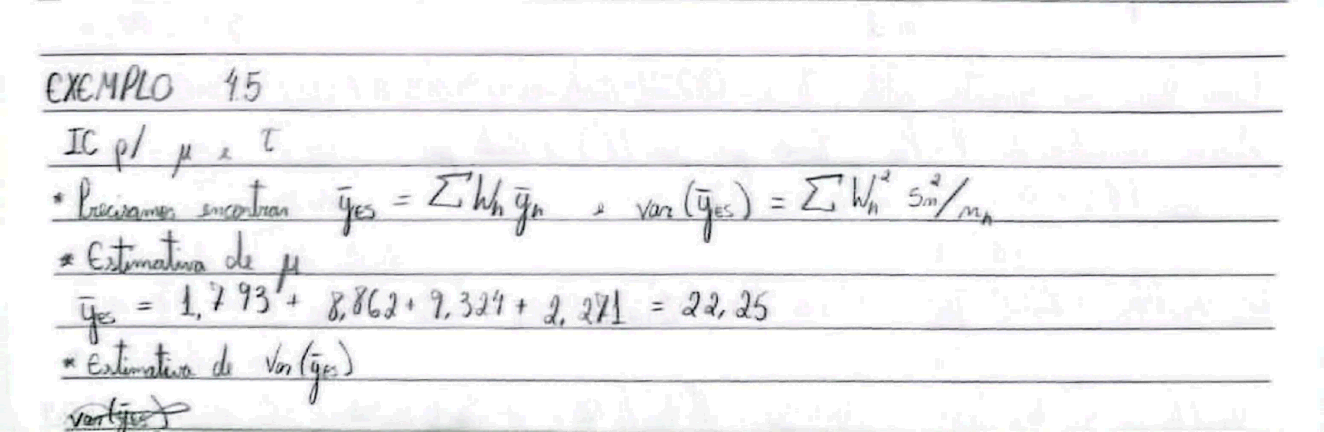 EXEMPLO 4.5
IC p/ μ e τ
* Precisamos encontrar ȳES = ∑Wh ȳh e var(ȳES) = ∑ Wh² Sh²/nh
* Estimativa de μ
ȳES = 1,793 + 8,862 + 9,324 + 2,271 = 22,25
* Estimativa de Var(ȳES)
var(ȳES)